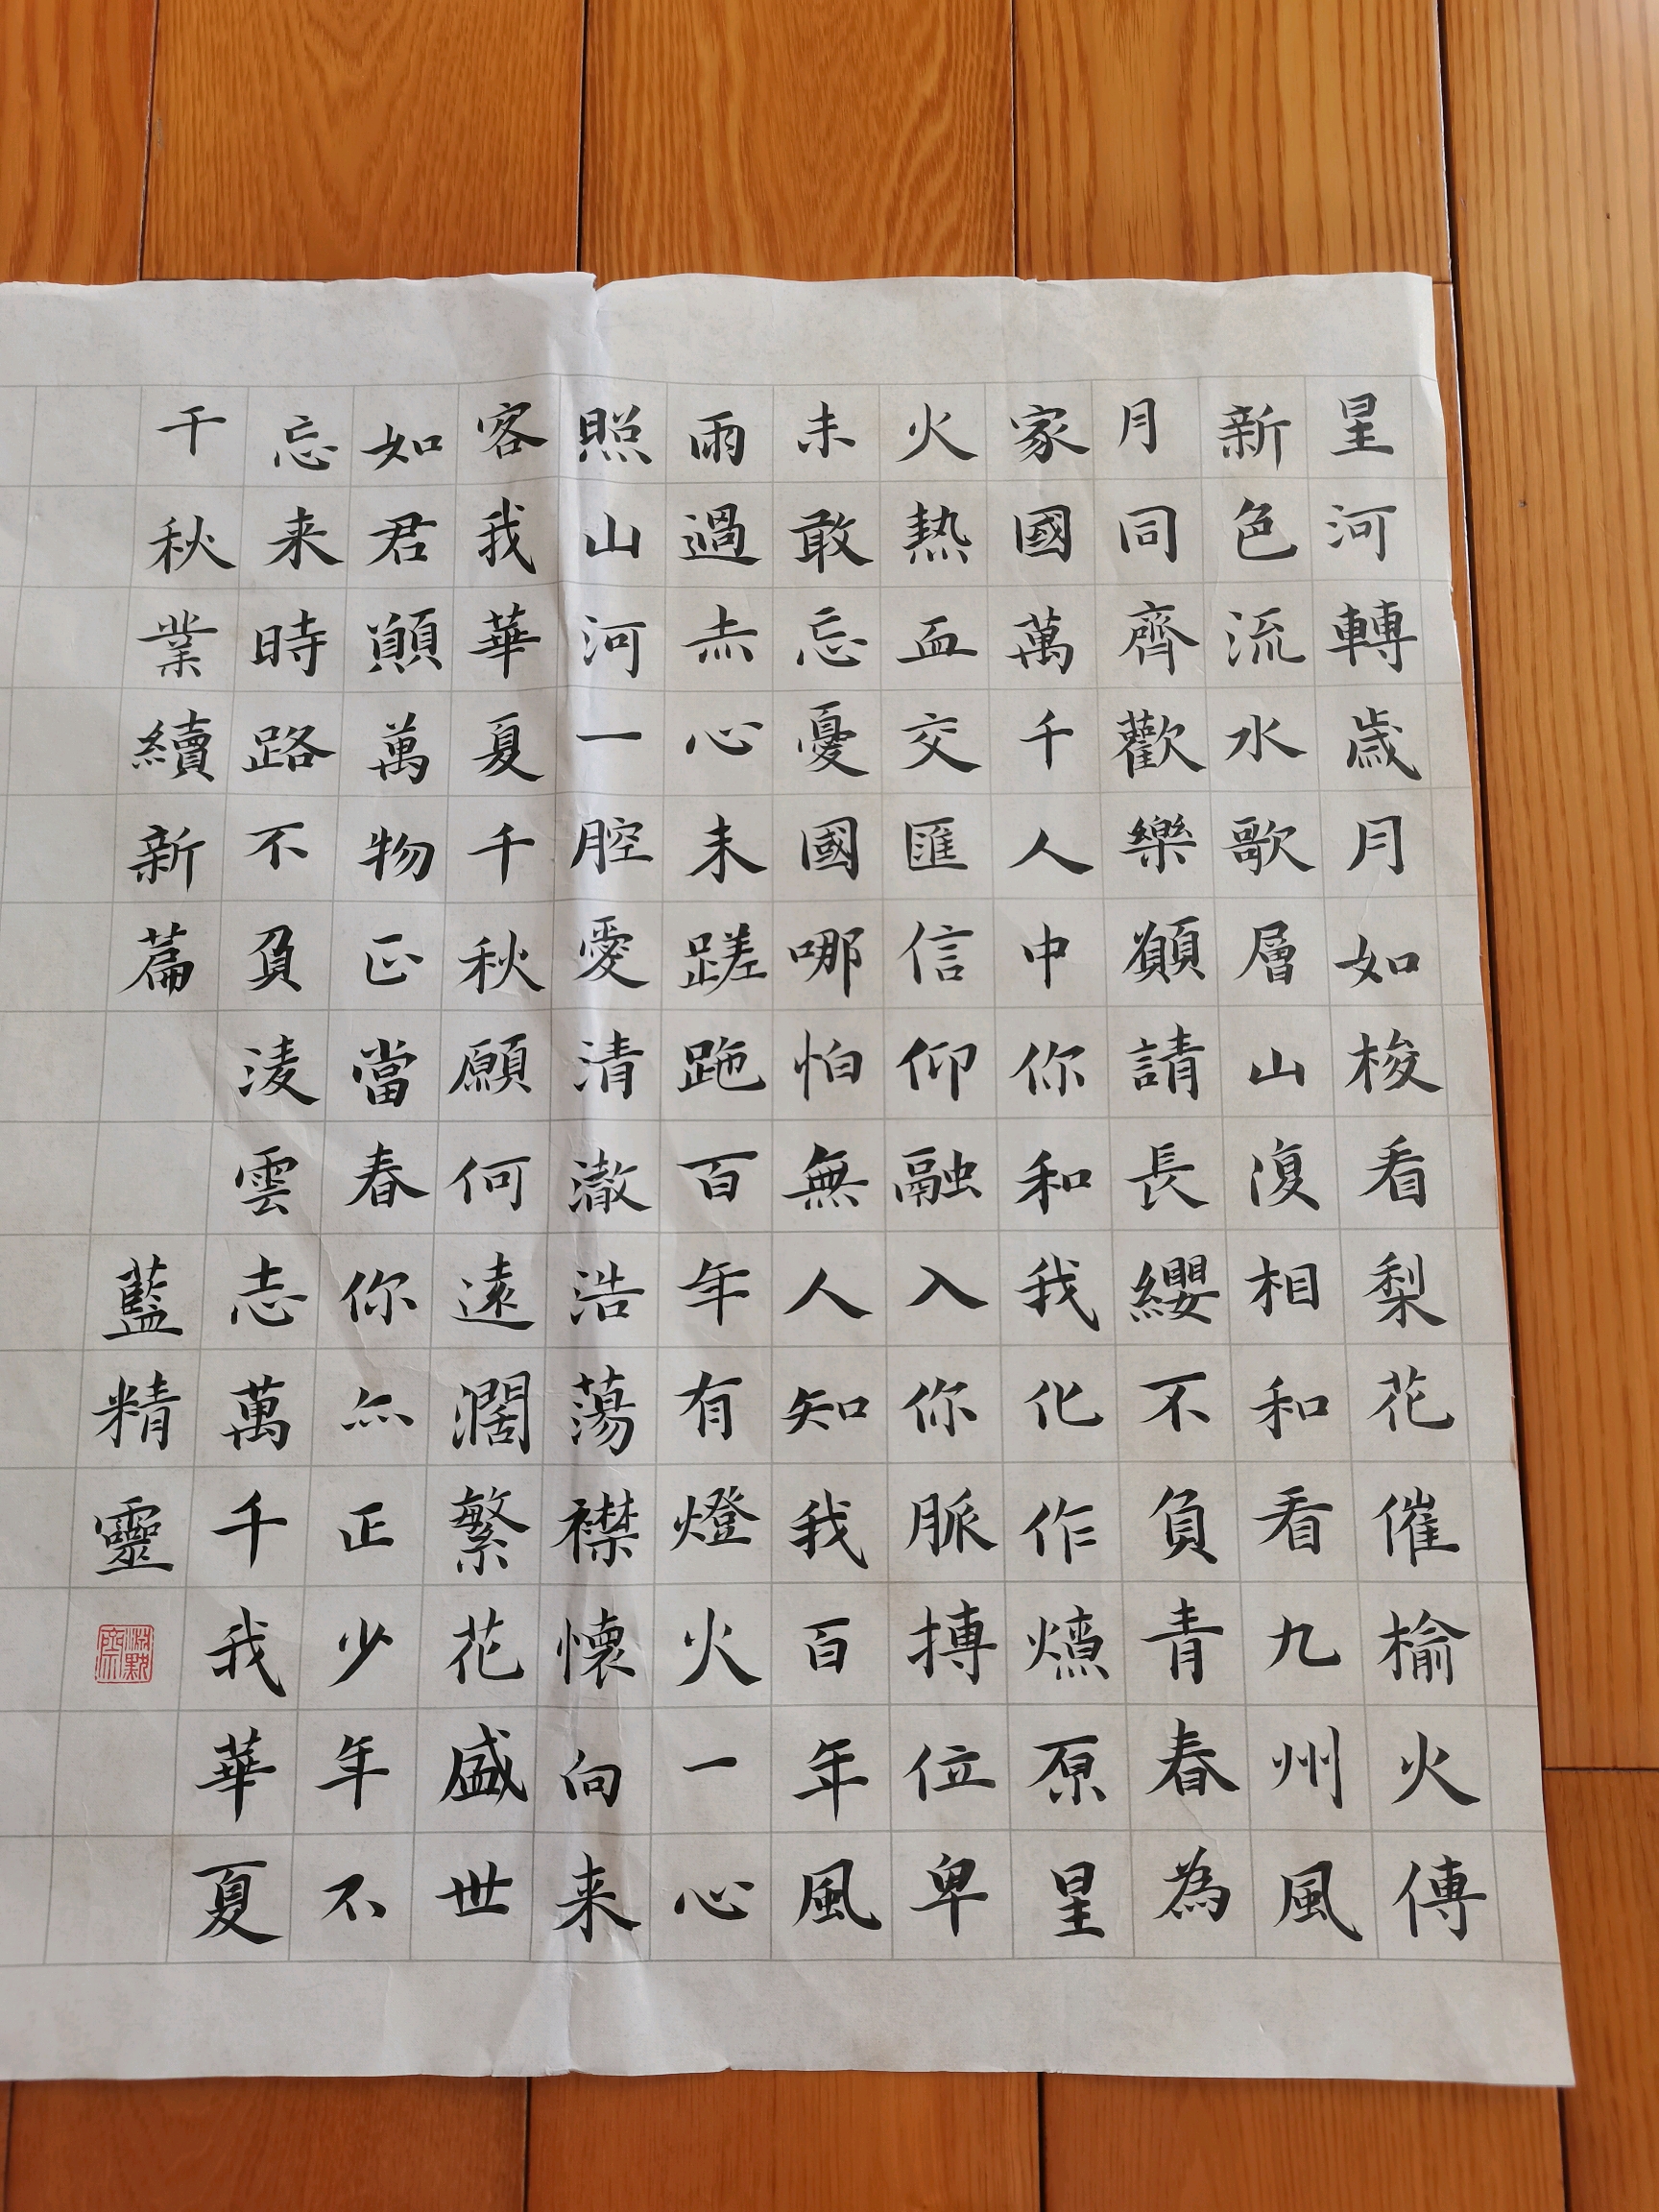 星河轉歲月如梭看梨花催榆火傳
新色流水歌層山復相和看九州風
月同齊歡樂願請長纓不負青春為
家國萬千人中你和我化作燎原星
火熱血交匯信仰融入你脈搏位卑
未敢忘憂國哪怕無人知我百年風
雨過赤心未蹉跎百年有燈火一心
照山河一腔愛清澈浩蕩襟懷向来
客我華夏千秋願何遠濶繁花盛世
如君願萬物正當春你亦正少年不
忘来時路不負淩雲志萬千我華夏
千秋業續新篇
藍精靈